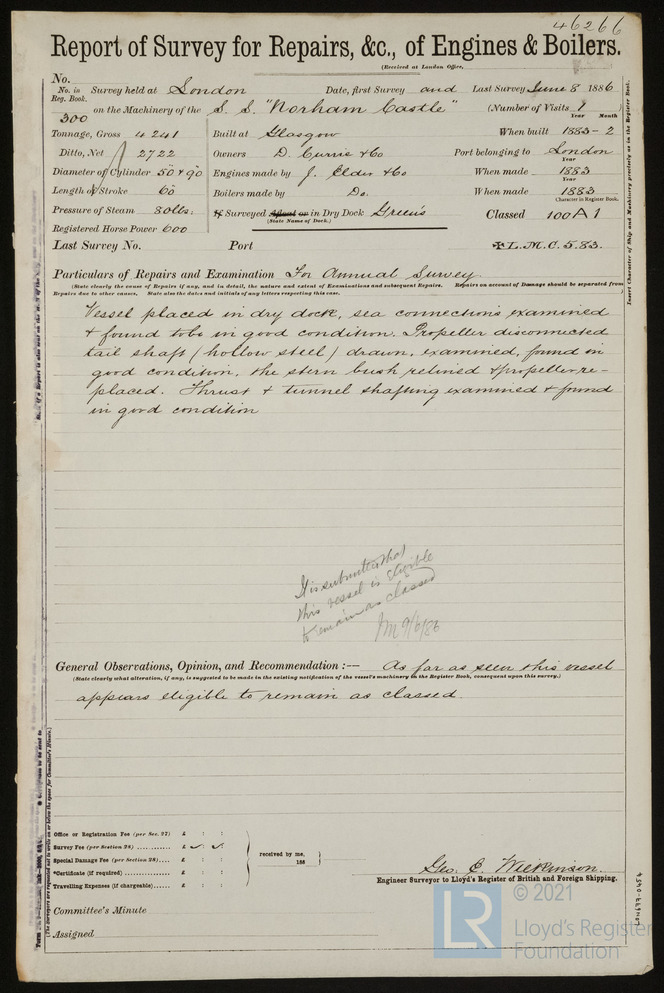 46266
Report of Survey for Repairs, &c., of Engines & Boilers.
(Received at London Office,
No.
No. in Reg. Book. Survey held at London Date, first Survey and Last Survey June 8 1886
300 on the Machinery of the S. S. "Norham Castle" (Number of Visits 1
Year Month
Tonnage, Gross 4241 Built at Glasgow When built 1883 - 2
Ditto, Net 2722 Owners D. Currie & Co Port belonging to London
Year
Diameter of Cylinder 50 & 90 Engines made by J. Elder & Co When made 1883
Year
Length of Stroke 60 Boilers made by Do. When made 1883
Character in Register Book.
Pressure of Steam 80 lbs: If Surveyed Afloat or in Dry Dock Green's Classed 100A1
(State Name of Dock.)
Registered Horse Power 600
Last Survey No. Port L.M.C. 5.83.
Particulars of Repairs and Examination For Annual Survey
(State clearly the cause of Repairs if any, and in detail, the nature and extent of Examinations and subsequent Repairs. Repairs on account of Damage should be separated from
Repairs due to other causes. State also the dates and initials of any letters respecting this case.
Vessel placed in dry dock, sea connections examined
& found to be in good condition. Propeller disconnected
tail shaft (hollow steel) drawn, examined, found in
good condition, the stern bush relined & propeller re-
placed. Thrust & tunnel shafting examined & found
in good condition
It is submitted that
this vessel is eligible
to remain as classed
9/6/86
General Observations, Opinion, and Recommendation :— As far as seen this vessel
(State clearly what alteration, if any, is suggested to be made in the existing notification of the vessel's machinery in the Register Book, consequent upon this survey.)
appears eligible to remain as classed.
Office or Registration Fee (per Sec. 27) £ : :
Survey Fee (per Section 28) £
Special Damage Fee (per Section 28) £ : :
*Certificate (if required) £ : :
Travelling Expenses (if chargeable) £ : :
received by me,
188
Geo. E. Wilkinson.
Engineer Surveyor to Lloyd's Register of British and Foreign Shipping.
Committee's Minute
Assigned
Insert Character of Ship and Machinery precisely as in the Register Book.
(The Surveyors are requested not to write on or below the space for Committee's Minute.)
LR
© 2021
Lloyd's Register
Foundation